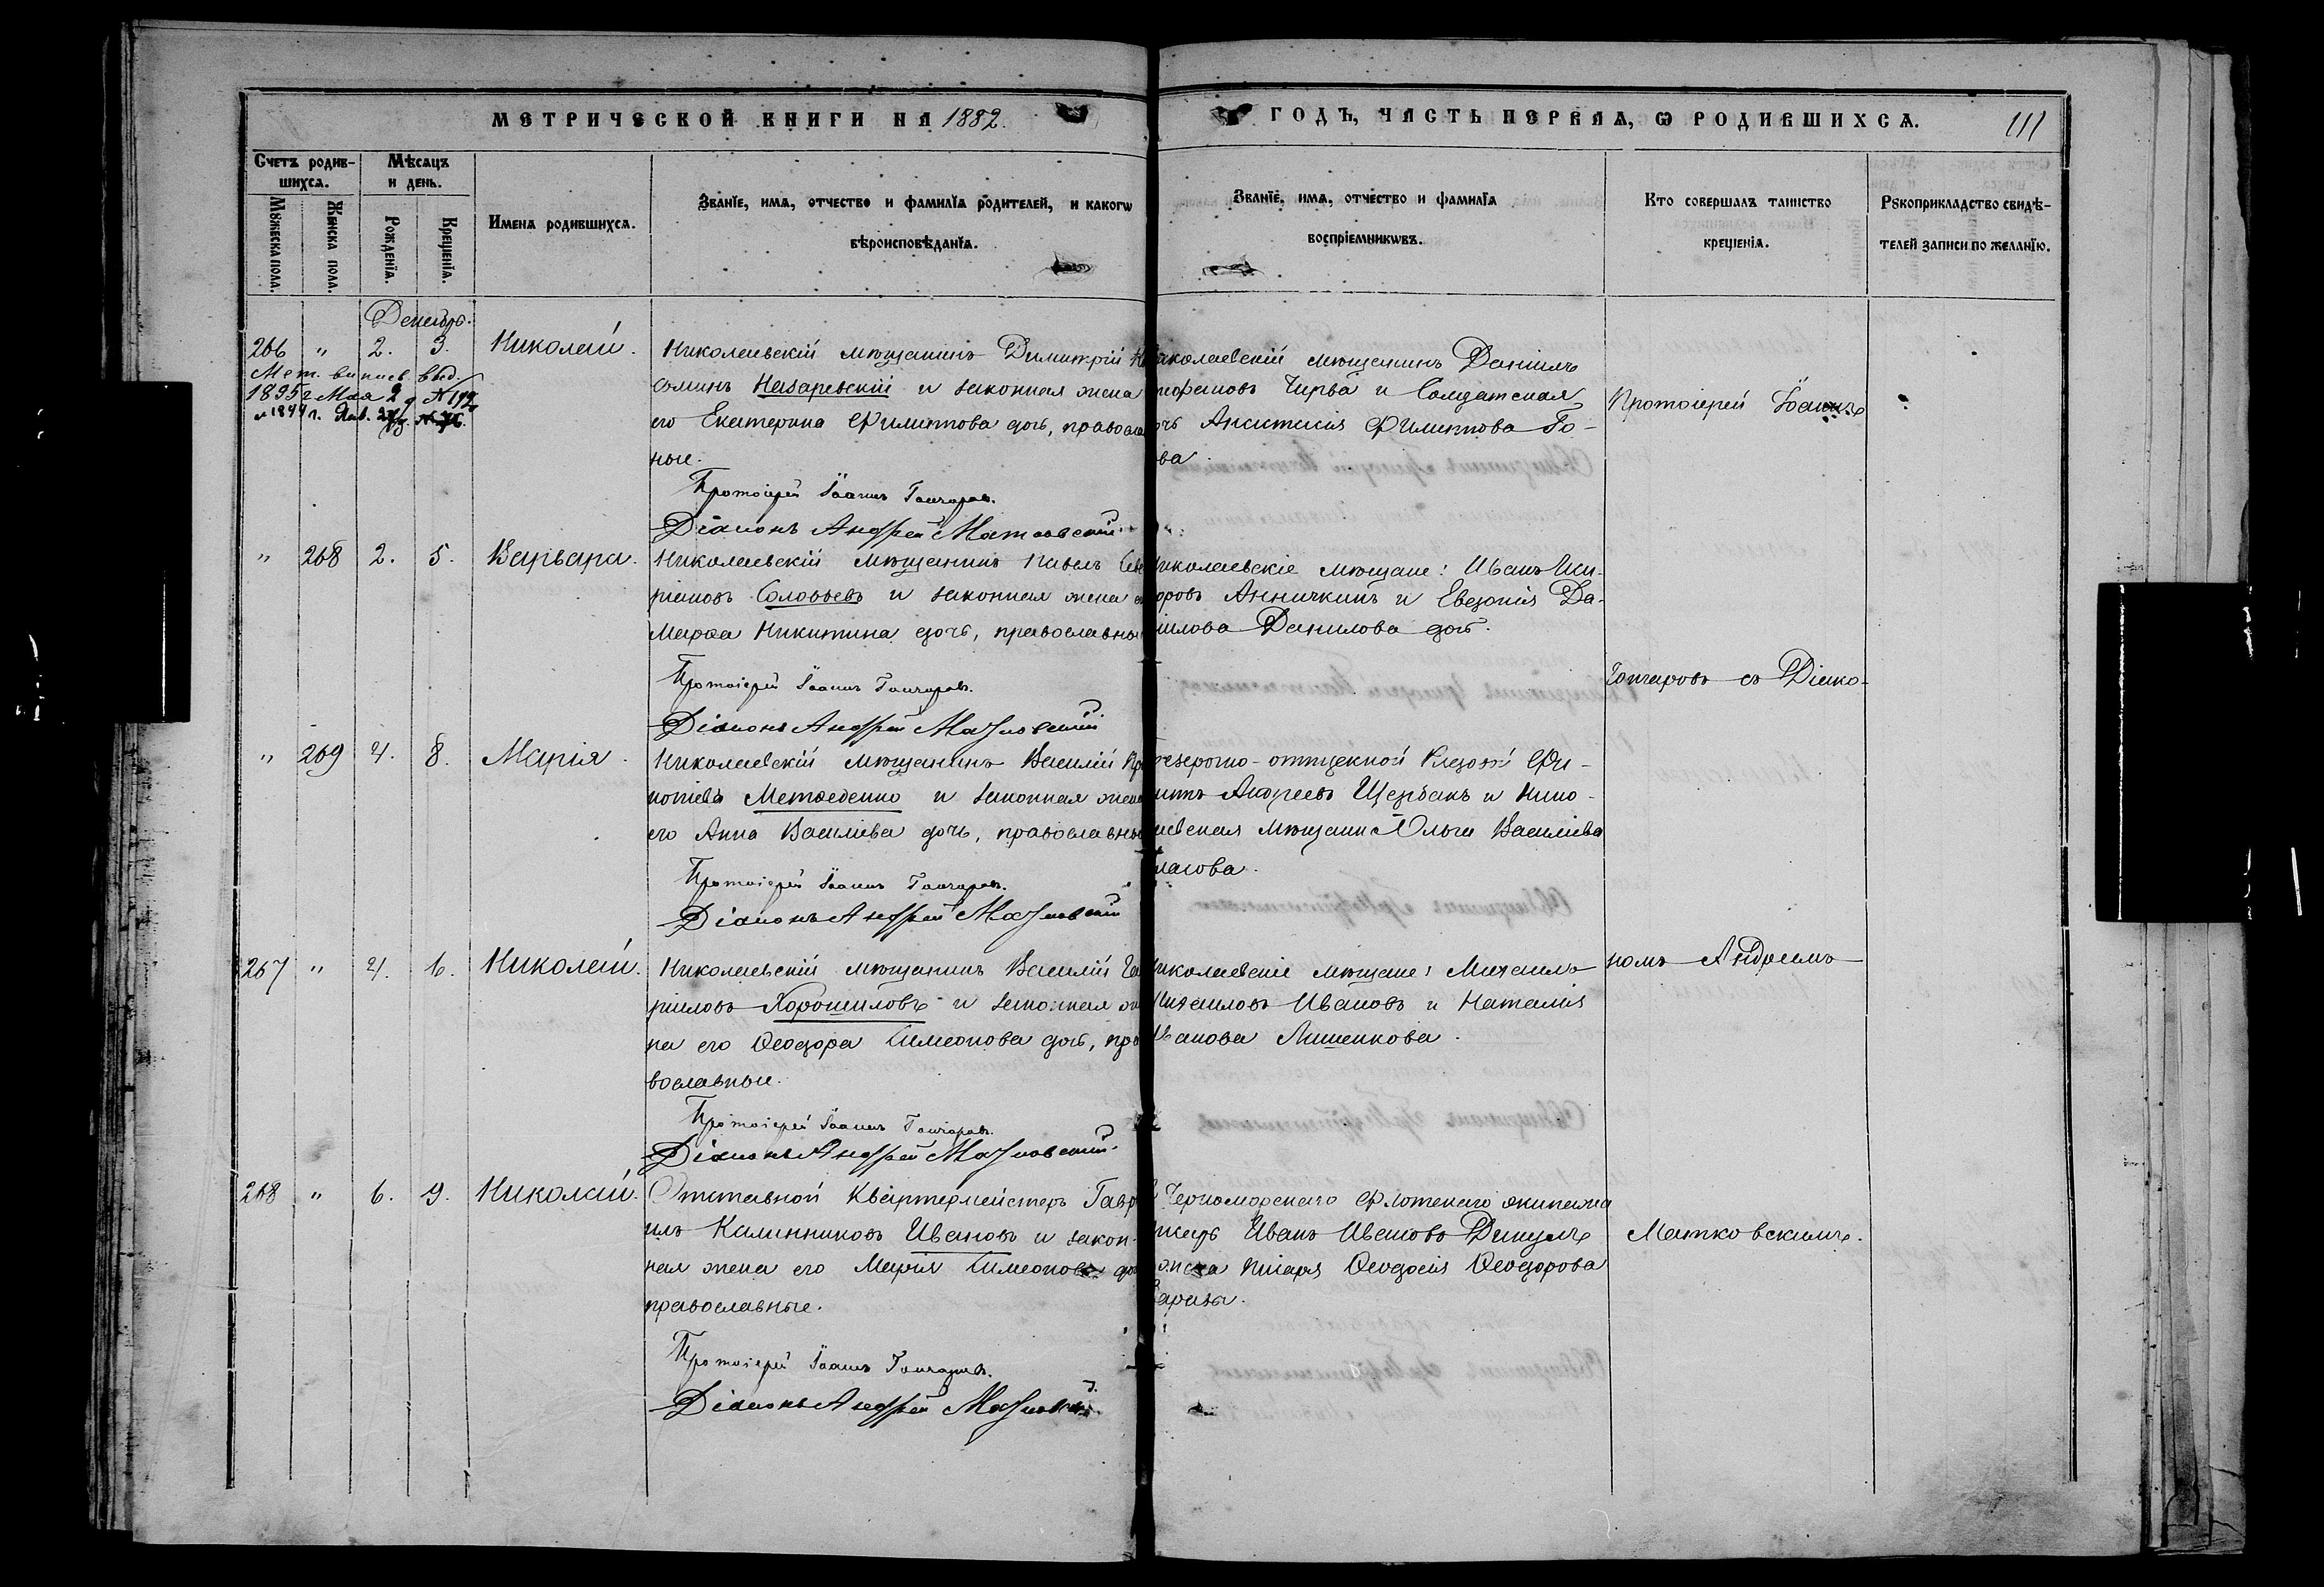 МЕТРИЧЕСКОЙ КНИГИ НА 1882
ГОДЪ, ЧАСТЬ ПЕРВАЯ, Ѡ РОДИВШИХСѦ.
111
Счетъ родив-
шихсѧ.
Мѣсѧцъ
и день.
Мꙋжеска пола.
Женска пола.
Рожденїѧ.
Крещенїѧ.
Имена родившихсѧ.
Званїе, имѧ, отчество и фамилїѧ родителей, и какогѡ
вѣроисповѣданїѧ.
Званїе, имѧ, отчество и фамилїѧ
воспрїемникѡвъ.
Кто совершалъ таинство
крещенїѧ.
Рꙋкоприкладство свидѣ-
телей записи по желанїю.
Декабрь.
266 " 2. 3. Николай.
Мет. выпись выд.
1895 г. Мая 2
Николаевскій мѣщанинъ Димитрій
Назаревскій и законная жена
его Екатерина Филиппова дочь, правосла
ные.
Протоіерей Іоаннъ Гончаровъ.
Діаконъ Андрей Матковскій.
николаевскій мѣщанинъ Даніилъ
Чирва и Солдатская
очь Анастасія Филиппова Го-
ва.
Протоіерей Іоаннъ
" 268 2. 5. Варвара.
Николаевскій мѣщанинъ Павелъ
ріановъ Соловьевъ и законная жена
Марѳа Никитина дочь, православны
Протоіерей Іоаннъ Гончаровъ.
Діаконъ Андрей Матковскій
николаевскіе мѣщане: Иванъ Иси-
оровъ Анничкинъ и Евдокія Да-
нилова Данилова дочь.
Гончаровъ съ Діако-
" 269 4. 8. Марія.
Николаевскій мѣщанинъ Василій
и законная жена
его Анна Василіева дочь, православны
Протоіерей Іоаннъ Гончаровъ.
Діаконъ Андрей Матковскій
Рядовой Фи-
Андреевъ Щербакъ и Нико-
аевская мѣщанка Ольга Василіева
ласова.
267 " 4. 6. Николай.
Николаевскій мѣщанинъ Василій Га
ріиловъ Хорошиловъ и законная же
на его Ѳеодора Симеонова дочь, пра
вославные.
Протоіерей Іоаннъ Гончаровъ.
Діаконъ Андрей Матковскій
николаевскіе мѣщане: Михаилъ
Михаиловъ Ивановъ и Наталія
Иванова Лишенкова.
номъ Андреемъ
268 " 6. 9. Николай.
Отставной Квартермейстеръ Гавр
илъ Калинниковъ Ивановъ и закон-
ная жена его Марія Симеонова до
православные.
Протоіерей Іоаннъ Гончаровъ.
Діаконъ Андрей Матковскій.
Черноморскаго Флотскаго экипажа
Иванъ Ивановъ
жена писаря Ѳеодосія Ѳеодорова
Матковскимъ.